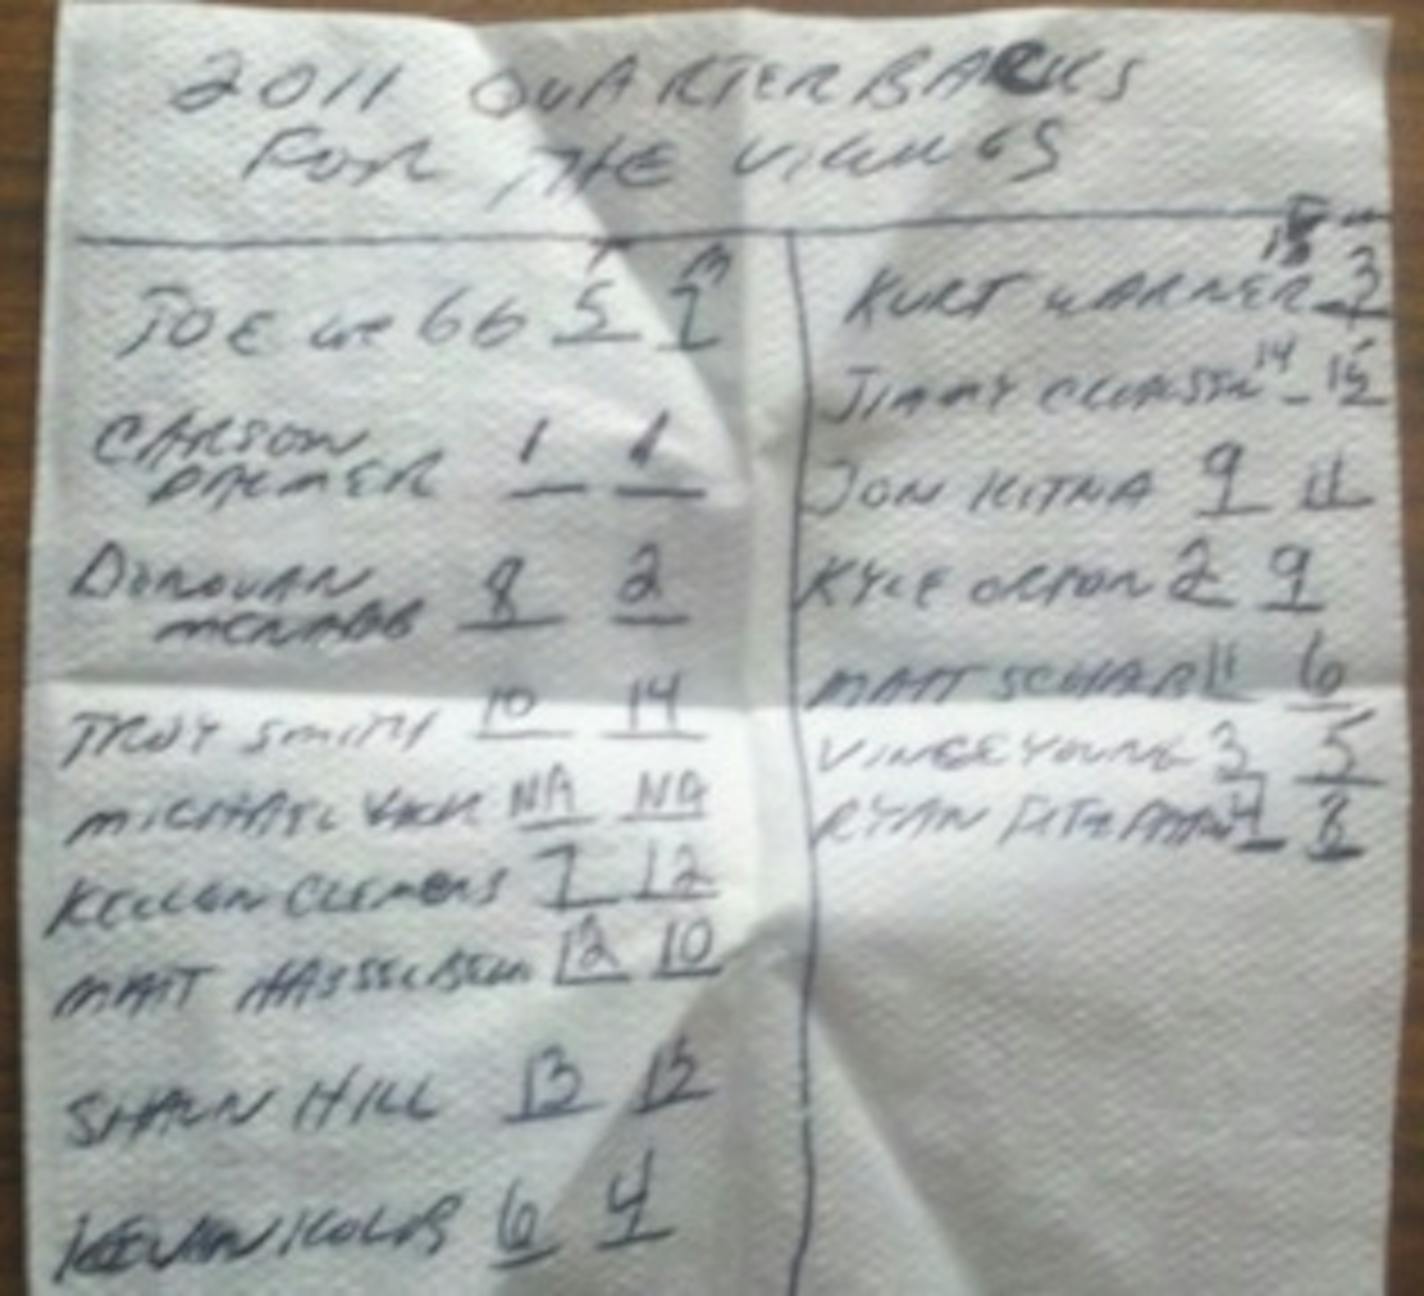 2011 QUARTERBACKS
FOR THE VIKINGS
JOE WEBB 5 7
CARSON 1 1
PALMER
DONOVAN 8 2
MCNABB
TROY SMITH 10 14
MICHAEL VICK NA NA
KELLEN CLEMENS 7 12
MATT HASSELBECK 12 10
SHAUN HILL 13 13
KEVIN KOLB 6 4
KURT WARNER 3
JIMMY CLAUSEN 14 - 15
JON KITNA 9 11
KYLE ORTON 2 9
MATT SCHAUB 11 6
VINCE YOUNG 3 5
RYAN FITZPATRICK 4 8